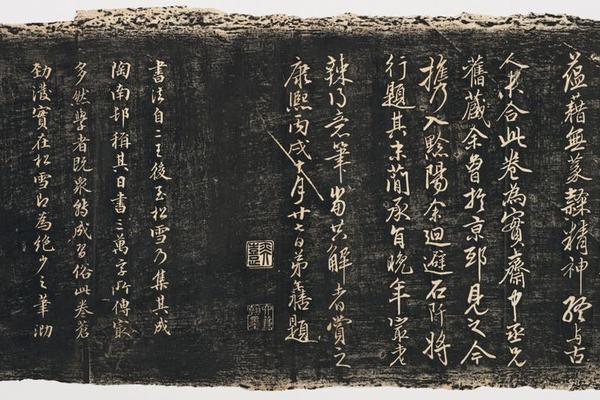 蘊藉無蒙精神與古
人合此卷為實齋中丞兄
舊藏余曾於京邸見之今
攜乃入黔陽余迴避石阡將
行題其末簡承旨晚年最老
辣得意筆當共解者賞之
康熙丙戌十月廿七日弟題
書法自二王後至松雪乃集其成
陶南邨稱其日書二萬字所傳最
多然學者既衆成習俗此卷蒼
勁濃實在松雪即為絕少之筆渤